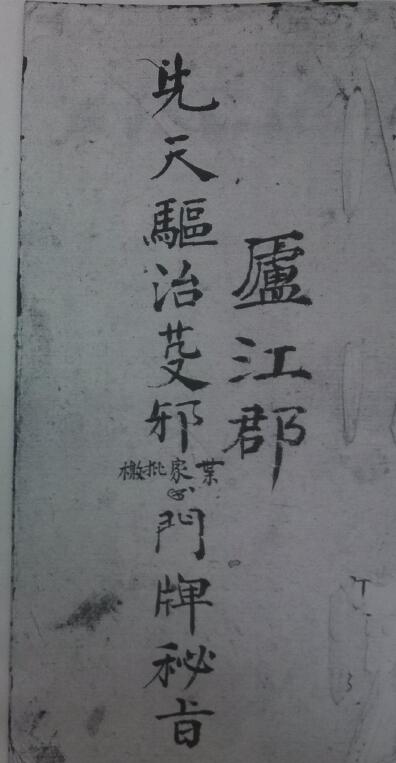 廬江郡
先天驅治芟邪
葉家批檄
門牌秘旨